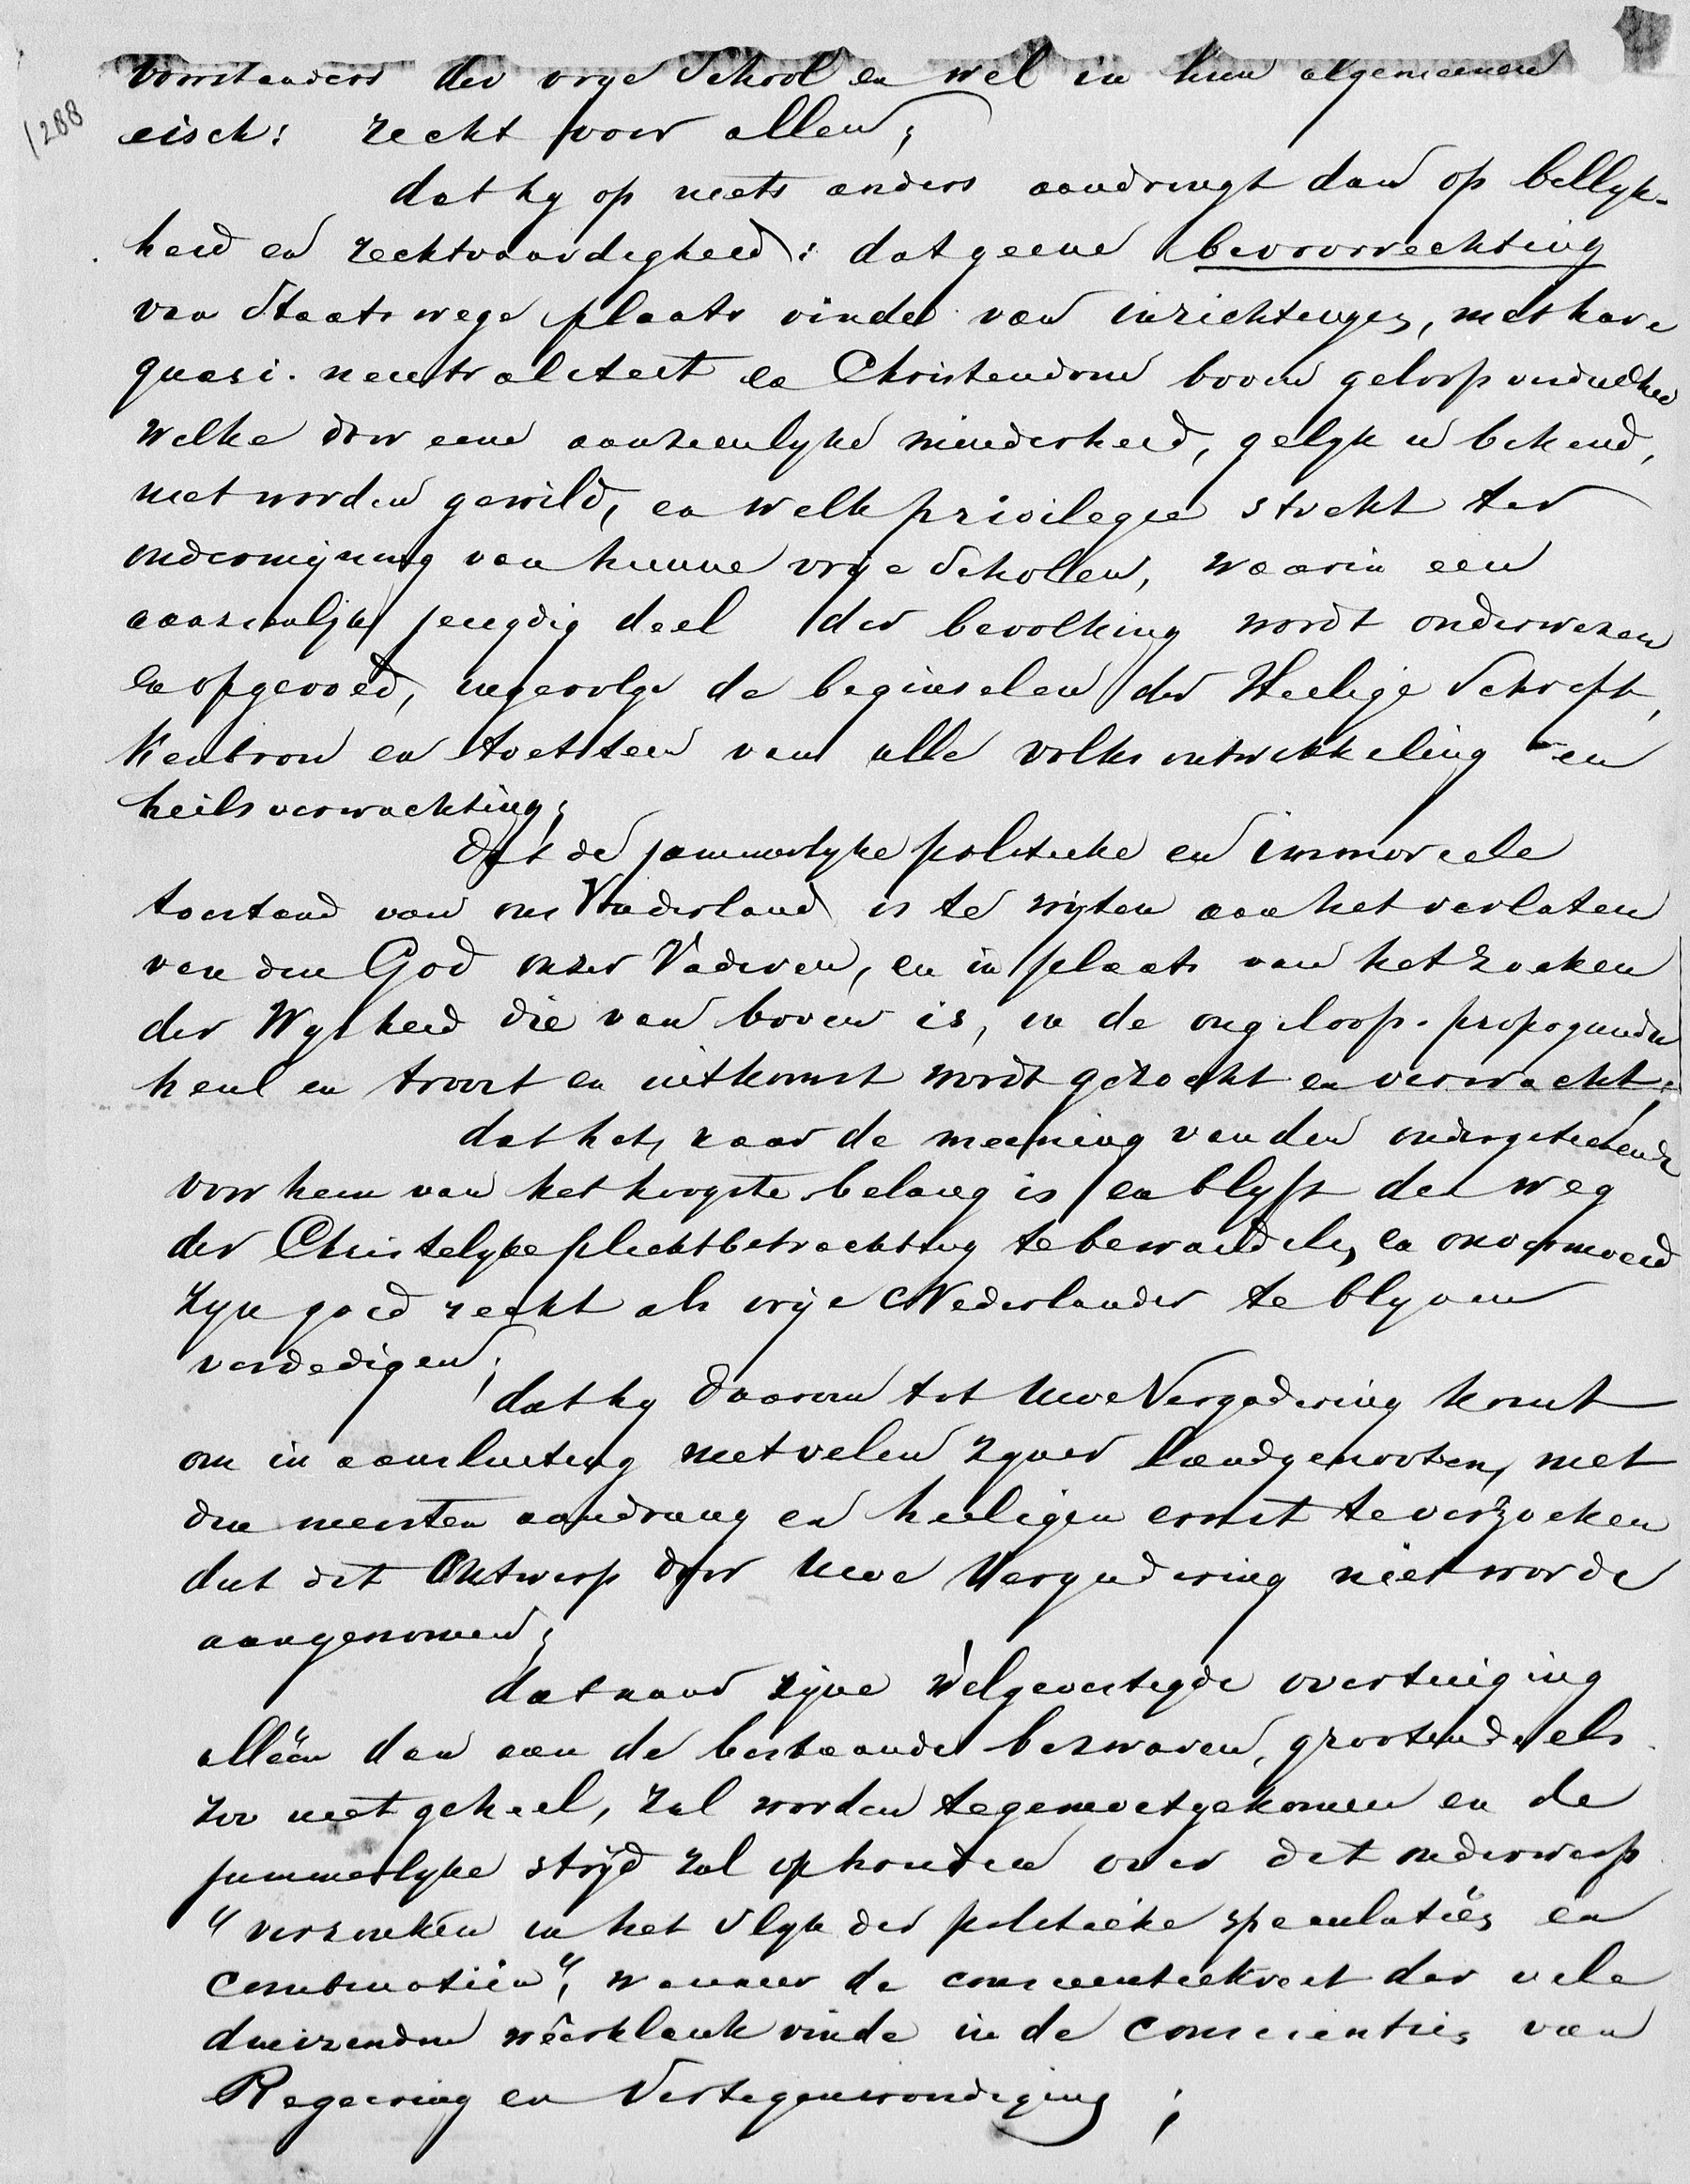 voorstanders der vrye School en wel in hun algemeenen
1288
eisch: recht voor allen;
dat hy op niets anders aandringt dan op billyk-
heid en rechtvaardigheid: dat geene bevoorrechting
van Staatswege plaats vinde van inrichtingen, met hare
quasi-neutraliteit en Christendom boven geloofsverdeeldheid
welke door eene aanzienlyke minderheid, gelyk u bekend,
niet worden gewild, en welk privilegie strekt ter
ondermijning van hunne vrije Scholen, waarin een
aanzienlijk jeugdig deel der bevolking wordt onderwezen
en opgevoed, ingevolge de beginselen der Heilige Schrift,
kenbron en toetsteen van alle volksontwikkeling en
heilsverwachting;
dat de jammerlyke politieke en immoreele
toestand van ons Vaderland is te wyten aan het verlaten
van den God onzer Vaderen, en in plaats van het zoeken
der Wysheid die van boven is, in de ongeloofs-propaganda
heul en troost en uitkomst wordt gezocht en verwacht;
dat het, naar de meening van den ondergeteekende
voor hem van het hoogste belang is en blyft den weg
der Christelyke plichtbetrachting te bewandelen en onvermoeid
zyn goed recht als vrije Nederlander te blyven
verdedigen;
dat hy daarom tot Uwe Vergadering komt
om in aansluiting met velen zyner landgenooten, met
den meesten aandrang en heiligen ernst te verzoeken
dat dit Ontwerp door Uwe Vergadering niet worde
aangenomen;
dat naar zyne welgevestigde overtuiging
alléén dan aan de bestaande bezwaren, grootendeels
zoo niet geheel, zal worden tegemoetgekomen en de
jammerlyke stryd zal ophouden over dit onderwerp
"verzonken in het slyk der politieke speculatiën en
combinatiën", wanneer de conscientiekreet der vele
duizenden wêerklank vinde in de conscientiën van
Regeering en Vertegenwoordiging;